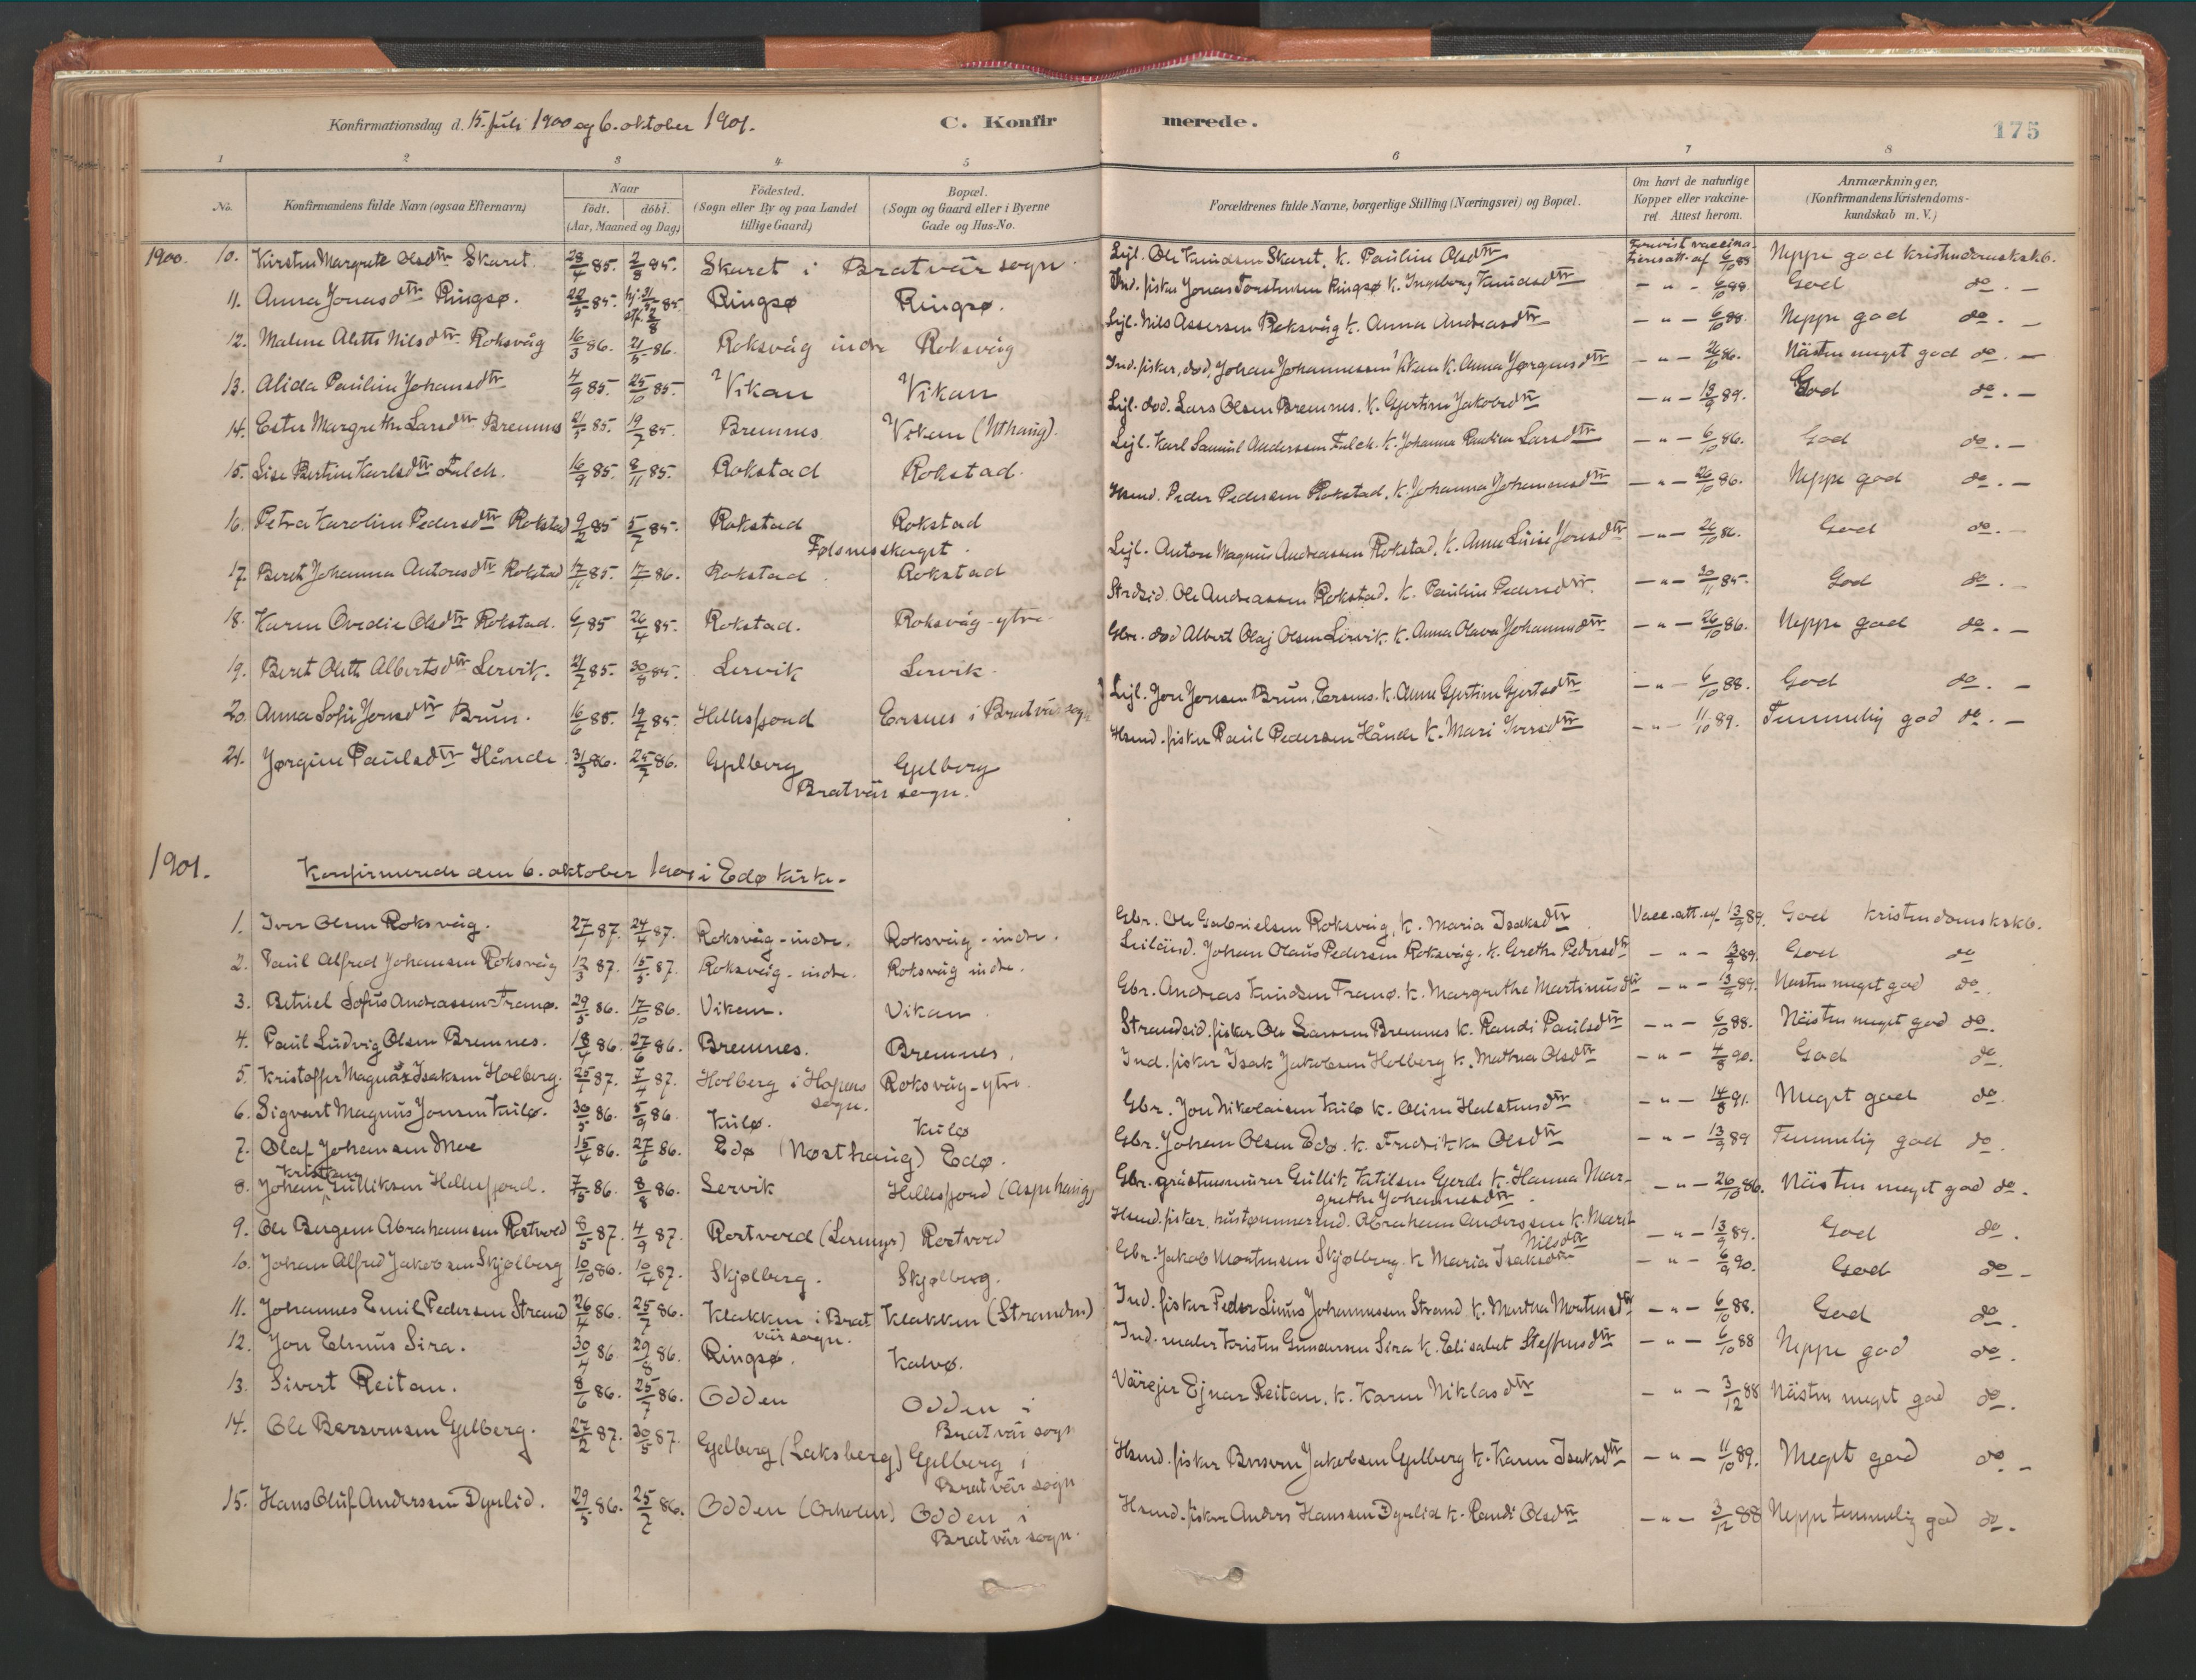 Konfirmationsdag d. 15. juli 1900 og 6. oktober 1901. C. Konfirmerede. 175
1 2 3 4 5 6 7 8
No. Konfirmandens fulde Navn (ogsaa Efternavn) Naar født, døbt. (Aar, Maaned og Dag) Fødested. (Sogn eller By og paa Landet tillige Gaard) Bopæl. (Sogn og Gaard eller i Byerne Gade og Hus-No. Forældrenes fulde Navne, borgerlige Stilling (Næringsvei) og Bopæl. Om havt de naturlige Kopper eller vakcineret Attest herom. Anmærkninger, (Konfirmandens Kristendomskundskab m. V.)
1900. 10. Kirsten Margrete Olsdtr Skaret. 28/4 85. 2/8 85. Skaret i Bratvär sogn. Lejl. Ole Knudsen Skaret, k. Pauline Olsdtr 6/10 89 Neppe god kristendomskskb.
11. Anna Jonasdtr Ringsø. 85. Ringsø Ringsø. Ind. fisker Jonas Torstensen Ringsø k. Ingeborg Knudsdtr - " - 6/10 88. God do. -
12. Malene Aletta Nilsdtr Roksvåg 16/3 86. 21/5 86. Roksvåg indre Roksvåg Lejl. Nils Assersen Roksvåg k. Anna Andreasdtr - " - 6/10 88. Neppe god do. -
13. Alida Pauline Johansdtr 4/9 85. 25/10 85. Vikan Vikan Ind. fisker, død, Johan Johannessen Vikan k. Anna Jørgensdtr - " - 26/10 86. Nästen meget god do. -
14. Ester Margrethe Larsdtr Bremnes 21/5 85. 19/7 85. Bremnes Vikan Lejl. død. Lars Olsen Bremnes. k. Gjertine Jakobsdtr - " - 13/9 89. God do. -
15. Lise Bertine Karlsdtr Falch. 16/9 85. 8/11 85. Rokstad Rokstad. Lejl. Karl Samuel Anderssen Falch. k. Johanna Larsdtr - " - 6/10 86. God do. -
16. Petra Karoline Pedersdtr Rokstad 9/2 85 5/7 85. Rokstad Rokstad Hsmd. Peder Pedersen Rokstad, k. Johanna Johannesdtr - " - 26/10 86. Neppe god do. -
17. Beret Johanna Antonsdtr Rokstad 17/11 85. 17/1 86. Rokstad. Rokstad Lejl. Anton Magnus Andreassen Rokstad. k. Anne Luise Jonsdtr - " - 26/10 86. God do. -
18. Karen Ovedie Olsdtr Rokstad. 6/1 85 26/4 85. Rokstad. Roksvåg-ytre. Strdsid. Ole Andreassen Rokstad. k. Pauline Pedersdtr. - " - 30/11 85. God do. -
19. Beret Oleth Albertsdtr Lervik. 21/7 85. 30/8 85. Lervik Lervik. Gbr. død Albert Olaj Olsen Lervik. k. Anna Olava Johannesdtr - " - 26/10 86. Neppe god do. -
20. Anna Sofie Jonsdtr Brun. 16/6 85. 19/7 85. Hellesfjord Ersnes i Bratvär sogn Lejl. Jon Jonsen Brun, Ersnes. k. Anne Gjertine Gjertsdtr - " - 6/10 88. God do. -
21. Jørgine Paulsdtr Hånde 31/3 86. 25/7 86. Gjelberg Gjelberg Hsmd. fisker Paul Pedersen Hånde k. Mari Iversdtr - " - 11/10 89. Temmelig god do. -
Bratvär sogn.
1901. Konfirmerede den 6. oktober 1901 i Edø kirke.
1. Iver Olsen Roksvåg. 27/1 87. 24/4 87. Roksvåg - indre. Roksvåg - indre. Gbr. Ole Gabrielsen Roksvåg, k. Maria Isaksdtr Vacc. att. af 13/9 89. God kristendomskskb.
2. Paul Alfred Johansen Roksvåg 12/3 87. 15/5 87. Roksvåg - indre. Roksvåg indre. Leiländ. Johan Olaus Pedersen Roksvåg. k. Grethe Pedersdtr - " - 13/9 89. God do
3. Betuel Sofus Andreassen Franø. 29/5 86. 17/10 86. Vikan. Vikan Gbr. Andreas Knudsen Franø. k. Margrethe Martinusdtr - " - 13/9 89. Nästen meget god do.
4. Paul Ludvig Olsen Bremnes. 18/4 86. 27/6 86. Bremnes. Bremnes. Strandsid. fisker Ole Larssen Bremnes k. Randi Paulsdtr - " - 6/10 88. Nästen meget god do.
5. Kristoffer Magnus Isaksen Holberg. 25/1 87. 7/4 87. Holberg i Hopens sogn. Roksvåg-ytre. Ind. fisker Isak Jakobsen Holberg k. Mathea Olsdtr - " - 4/8 90. God do.
6. Sigvart Magnus Jonsen Kulø. 30/5 86. 5/9 86. Kulø. Kulø Gbr. Jon Nikolaisen Kulø k. Oline Halstensdtr - " - 14/8 91. Meget god do.
7. Olaf Johansen Moe 15/4 86. 27/6 86. Edø (Nøsthaug) Edø. Gbr. Johan Olsen Edø. k. Fredrikka Olsdtr - " - 13/9 89 Temmelig god do.
8. Johan Kristian Gulliksen Hellesfjord. 7/5 86. 8/8 86. Lervik Hellesfjord (Aspehaug) Gbr. gråstensmurer Gullik Ketilsen Gjerde k. Hanna Margrethe Johannesdtr. - " - 26/10 86. Nästen meget god do.
9. Ole Bergem Abrahamsen Rostvold 8/5 87. 4/9 87. Rostvold Rostvold Hsmd. fisker, hustømmermd. Abraham Anderssen k. Marit Nilsdtr - " - 13/9 89. God do.
10. Johan Alfred Jakobsen Skjølberg 10/10 86. 10/4 87. Skjølberg. Skjølberg. Gbr. Jakob Mortensen Skjølberg. k. Maria Isaksdtr - " - 6/9 90. God do -
11. Johannes Emil Pedersen Strand 26/4 86. 25/7 86. Klakken i Bratvär sogn. Klakken (Stranden) Ind. fisker Peder Linus Johannessen Strand k. Martha Mortensdtr - " - 6/10 88. God do.
12. Jon Elinus Sira. 30/4 86. 29/8 86. Ringsø. Kalvø. Ind. maler Kristen Gundersen Sira k. Elisabet Steffensdtr - " - 6/10 88 Neppe god do.
13. Sivert Reitan. 8/6 86. 25/7 86. Odden Odden i Bratvär sogn Värejer Ejnar Reitan. k. Karen Niklasdtr - " - 3/12 88 Nästen meget god do.
14. Ole Bersvensen Gjelberg. 27/2 87. 30/5 87. Gjelberg (Laksberg) Gjelberg i Bratvär sogn Hsmd. fisker Bersven Jakobsen Gjelberg k. Karen Isaksdtr - " - 11/10 89. Meget god do. -
15. Hans Oluf Anderssen Dyrlid. 29/5 86. 25/7 86. Odden (Orholm) Odden i Bratvär sogn. Hsmd. fisker Anders Hanssen Dyrlid k. Randi Olsdtr - " - 3/12 88 Neppe temmelig god do.